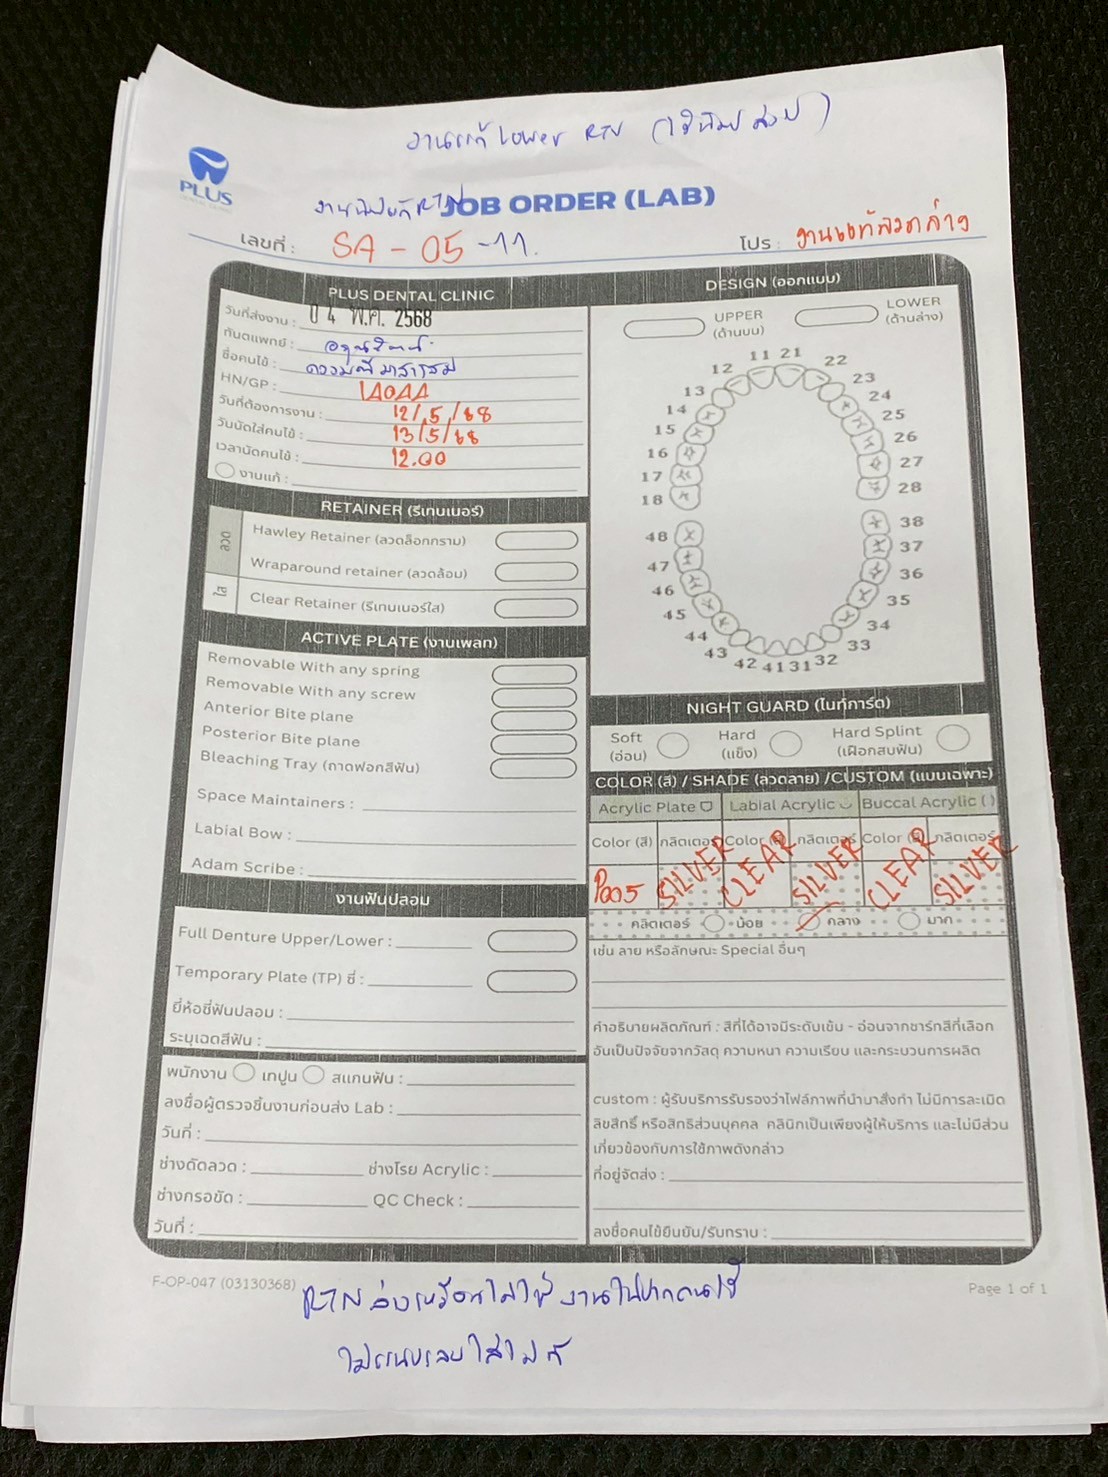 งานแก้ Lower RTN
PLUS
JOB ORDER (LAB)
เลขที่ : SA - 05 - 11.
โปร : งานแก้ลวดล่าง
PLUS DENTAL CLINIC
วันที่ส่งงาน : 0 4 พ.ค. 2568
ทันตแพทย์ :
ชื่อคนไข้ :
HN/GP :
วันที่ต้องการงาน : 12/5/68
วันนัดใส่คนไข้ : 13/5/68
เวลานัดคนไข้ : 12.00
งานแก้ :
RETAINER (รีเทนเนอร์)
ลวด
Hawley Retainer (ลวดล็อกกราม)
Wraparound retainer (ลวดล้อม)
ใส
Clear Retainer (รีเทนเนอร์ใส)
ACTIVE PLATE (งานเพลท)
Removable With any spring
Removable With any screw
Anterior Bite plane
Posterior Bite plane
Bleaching Tray (ถาดฟอกสีฟัน)
Space Maintainers :
Labial Bow :
Adam Scribe :
งานฟันปลอม
Full Denture Upper/Lower :
Temporary Plate (TP) ซี่ :
ยี่ห้อซี่ฟันปลอม :
ระบุเฉดสีฟัน :
พนักงาน เทปูน สแกนฟัน :
ลงชื่อผู้ตรวจชิ้นงานก่อนส่ง Lab :
วันที่ :
ช่างดัดลวด : ช่างโรย Acrylic :
ช่างกรอขัด : QC Check :
วันที่ :
DESIGN (ออกแบบ)
UPPER (ด้านบน)
LOWER (ด้านล่าง)
11 21
12 22
13 23
14 24
15 25
16 26
17 27
18 28
48 38
47 37
46 36
45 35
44 34
43 33
42 41 31 32
NIGHT GUARD (ไนท์การ์ด)
Soft (อ่อน)
Hard (แข็ง)
Hard Splint (เฝือกสบฟัน)
COLOR (สี) / SHADE (ลวดลาย) /CUSTOM (แบบเฉพาะ)
Acrylic Plate Labial Acrylic Buccal Acrylic ( )
Color (สี) กลิตเตอร์ Color (สี) กลิตเตอร์ Color (สี) กลิตเตอร์
SILVER CLEAR SILVER CLEAR SILVER
กลิตเตอร์ น้อย กลาง มาก
เช่น ลาย หรือลักษณะ Special อื่นๆ
คำอธิบายผลิตภัณฑ์ : สีที่ได้อาจมีระดับเข้ม - อ่อนจากชาร์ทสีที่เลือก
อันเป็นปัจจัยจากวัสดุ ความหนา ความเรียบ และกระบวนการผลิต
custom : ผู้รับบริการรับรองว่าไฟล์ภาพที่นำมาสั่งทำ ไม่มีการละเมิด
ลิขสิทธิ์ หรือสิทธิส่วนบุคคล คลินิกเป็นเพียงผู้ให้บริการ และไม่มีส่วน
เกี่ยวข้องกับการใช้ภาพดังกล่าว
ที่อยู่จัดส่ง :
ลงชื่อคนไข้ยืนยัน/รับทราบ :
F-OP-047 (03130368)
Page 1 of 1
RTN